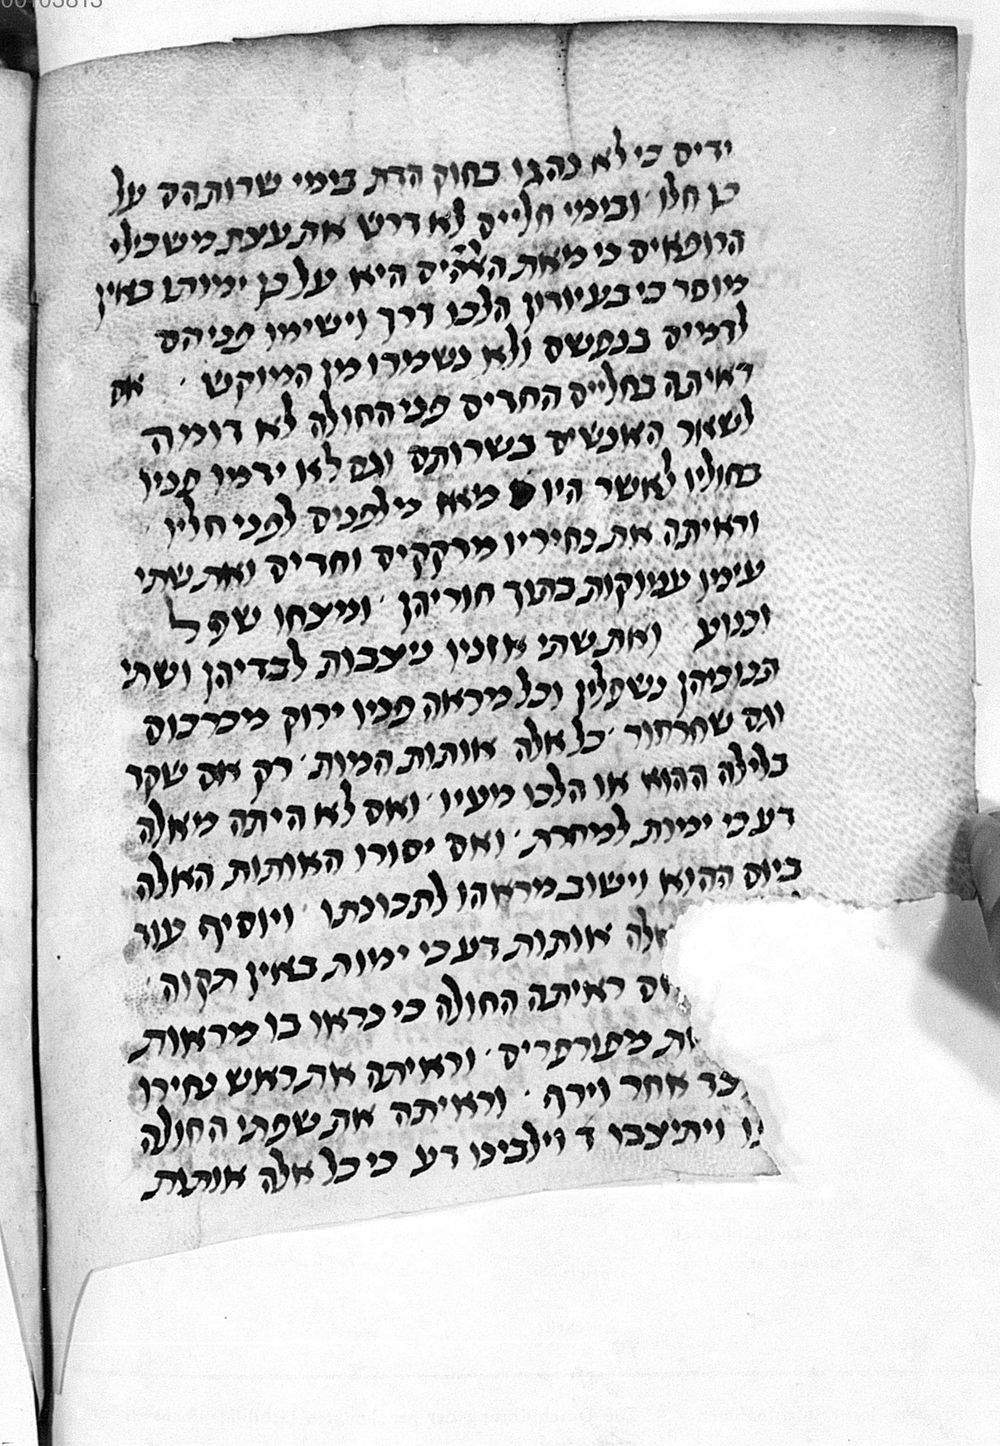 00105813
ידים כי לא נהגו בחוק הדת בימי שרותהם על
כן חלו ׳ ובימי חליים לא דרש את עצת משכילי
הרופאים כי מאת האלהים היא על כן ימותו באין
מוסר כי בעיורון הלכו דרך וישימו פניהם
לדמים בנפשם ולא נשמרו מן המוקש ׳ אם
ראיתה בחליים החדים פני החולה לא דומה
לשאר האנשים בשרותם וגם לא ידמו פניו
בחוליו לאשר היו מאז מילפנים לפני חליו ׳
וראיתה את נחיריו מרקקים וחדים ואת שתי
עינין עמוקות בתוך חוריהן ׳ ומיצחו שפל
וכנוע ואת שתי אזניו ניצבות לבדיהן ושתי
תנוכיהן נשפלין וכל מיראה פניו ירוק מכרכום
וגם שחרחור ׳ כל אלה אותות המות ׳ רק אם שקד
בלילה ההוא או הלכו מעיו ׳ ואם לא היתה מאלה
דע כי ימות למחרת ׳ ואם יסורו האותות האלה
ביום ההוא וישוב מראהו לתכונתו ׳ ויוסיף עוד
אלה אותות דע כי ימות באין תקוה ׳
ראיתה החולה כי נראו בו מיראות
מפורפרים ׳ וראיתה את ראש נחירו
אחד וירף ׳ וראיתה את שפתי החולה
ויתיצבו ד וילבינו דע כי כל אלה אותות